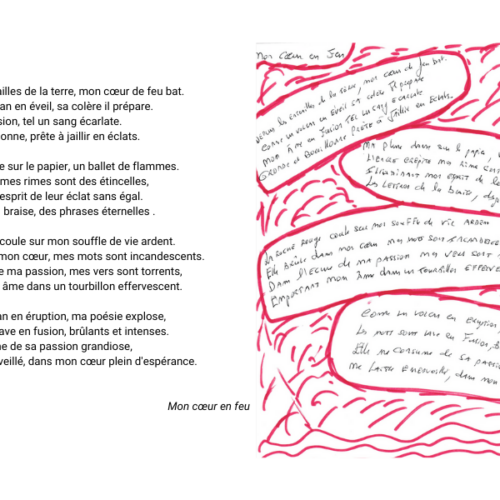 ailles de la terre, mon cœur de feu bat.
an en éveil, sa colère il prépare.
sion, tel un sang écarlate.
onne, prête à jaillir en éclats.
e sur le papier, un ballet de flammes.
mes rimes sont des étincelles,
esprit de leur éclat sans égal.
braise, des phrases éternelles .
coule sur mon souffle de vie ardent.
mon cœur, mes mots sont incandescents.
e ma passion, mes vers sont torrents,
âme dans un tourbillon effervescent.
an en éruption, ma poésie explose,
ave en fusion, brûlants et intenses.
ne de sa passion grandiose,
veillé, dans mon cœur plein d'espérance.
Mon cœur en feu
Mon Cœur en feu
de la terre, mon cœur de feu bat.
comme un volcan en éveil sa colère il prépare
mon âme en fusion tel un sang écarlate
gronde et bouillonne prête à jaillir en éclats.
Ma plume danse sur le papier, un
mon esprit de le
La lave rouge coule sur mon souffle de vie ardent
Elle brûle dans mon cœur mes mots sont incandesce
Dans de ma passion mes vers sont
Emportant mon âme dans un tourbillon efferve
Comme un volcan en éruption,
mots sont lave en fusion,
Elle me consume de sa passio
me laisse émerveillé, dans mon